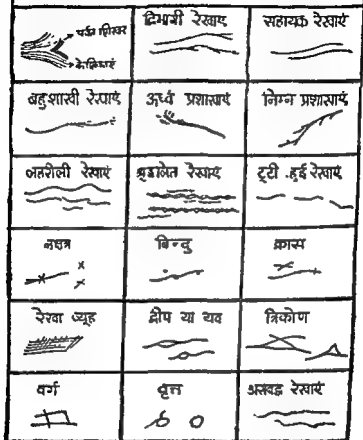 द्विभागी रेखाएं
सहायक रेखाएं
बहुशाखी रेखाएं
ऊर्ध्व प्रशाखाएं
निम्न प्रशाखाएं
लहरीली रेखाएं
श्रृंखलित रेखाएं
टूटी हुई रेखाएं
नक्षत्र
बिन्दु
क्रास
रेखा व्यूह
द्वीप या यव
त्रिकोण
वर्ग
वृत्त
असंबद्ध रेखाएं